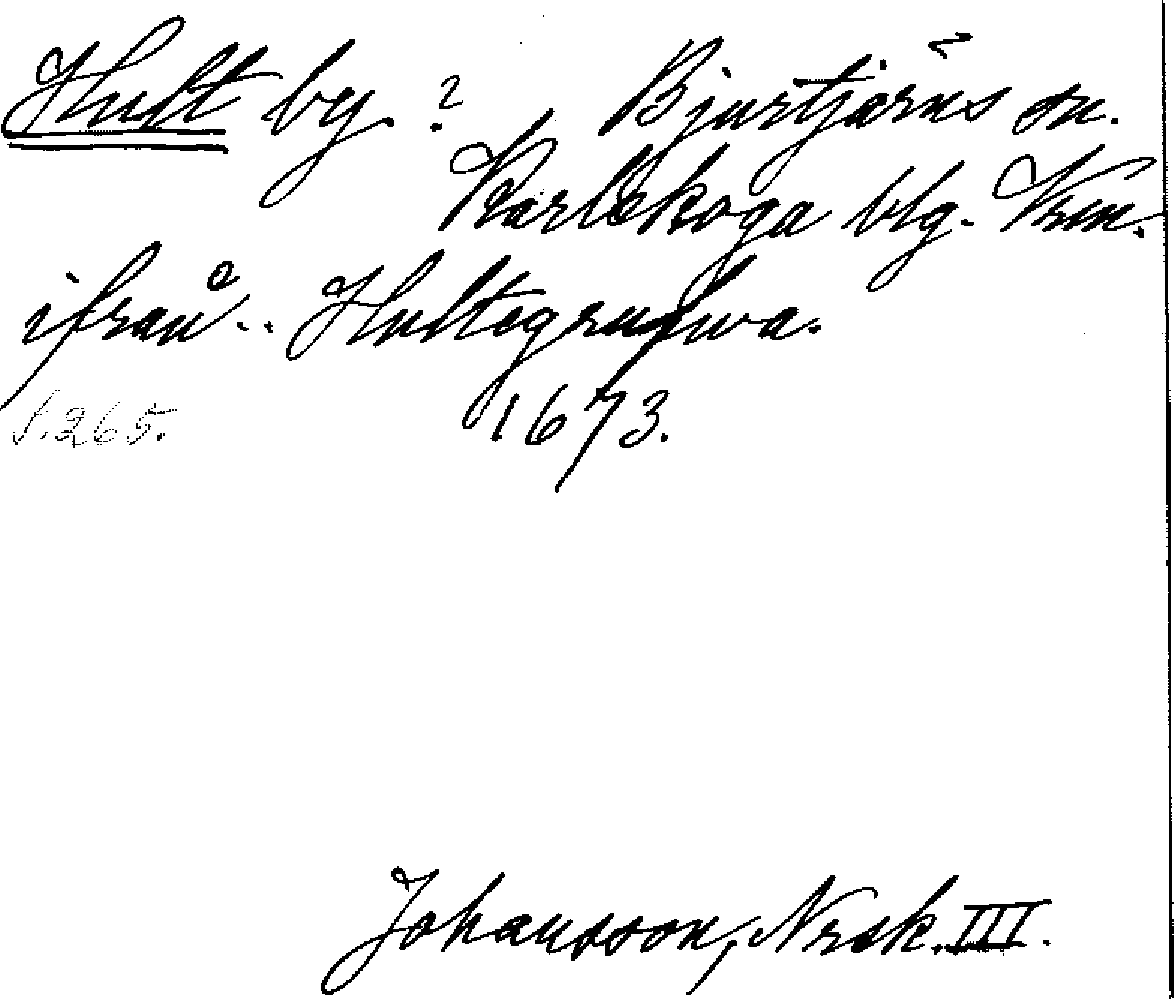 Hult by. ? Bjurtjärns sn.
Karlskoga blg. Vrm.
ifrån .. Hultegrufwa.
s. 265. 1673.
Johansson, Nrsk. III.